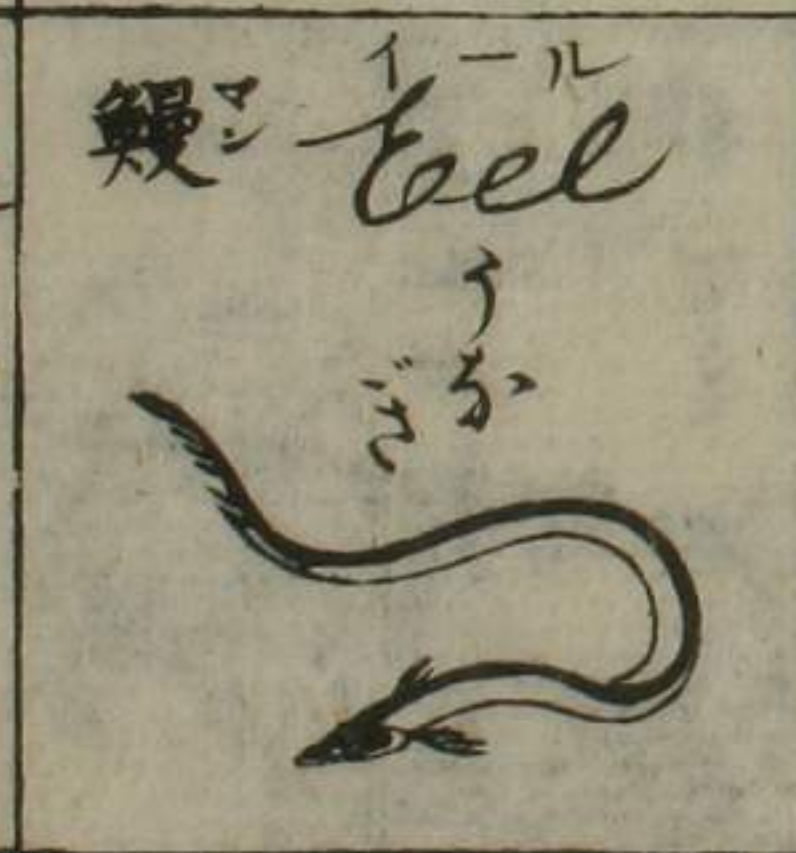 イール
Eel
鰻 マン
うな
ぎ